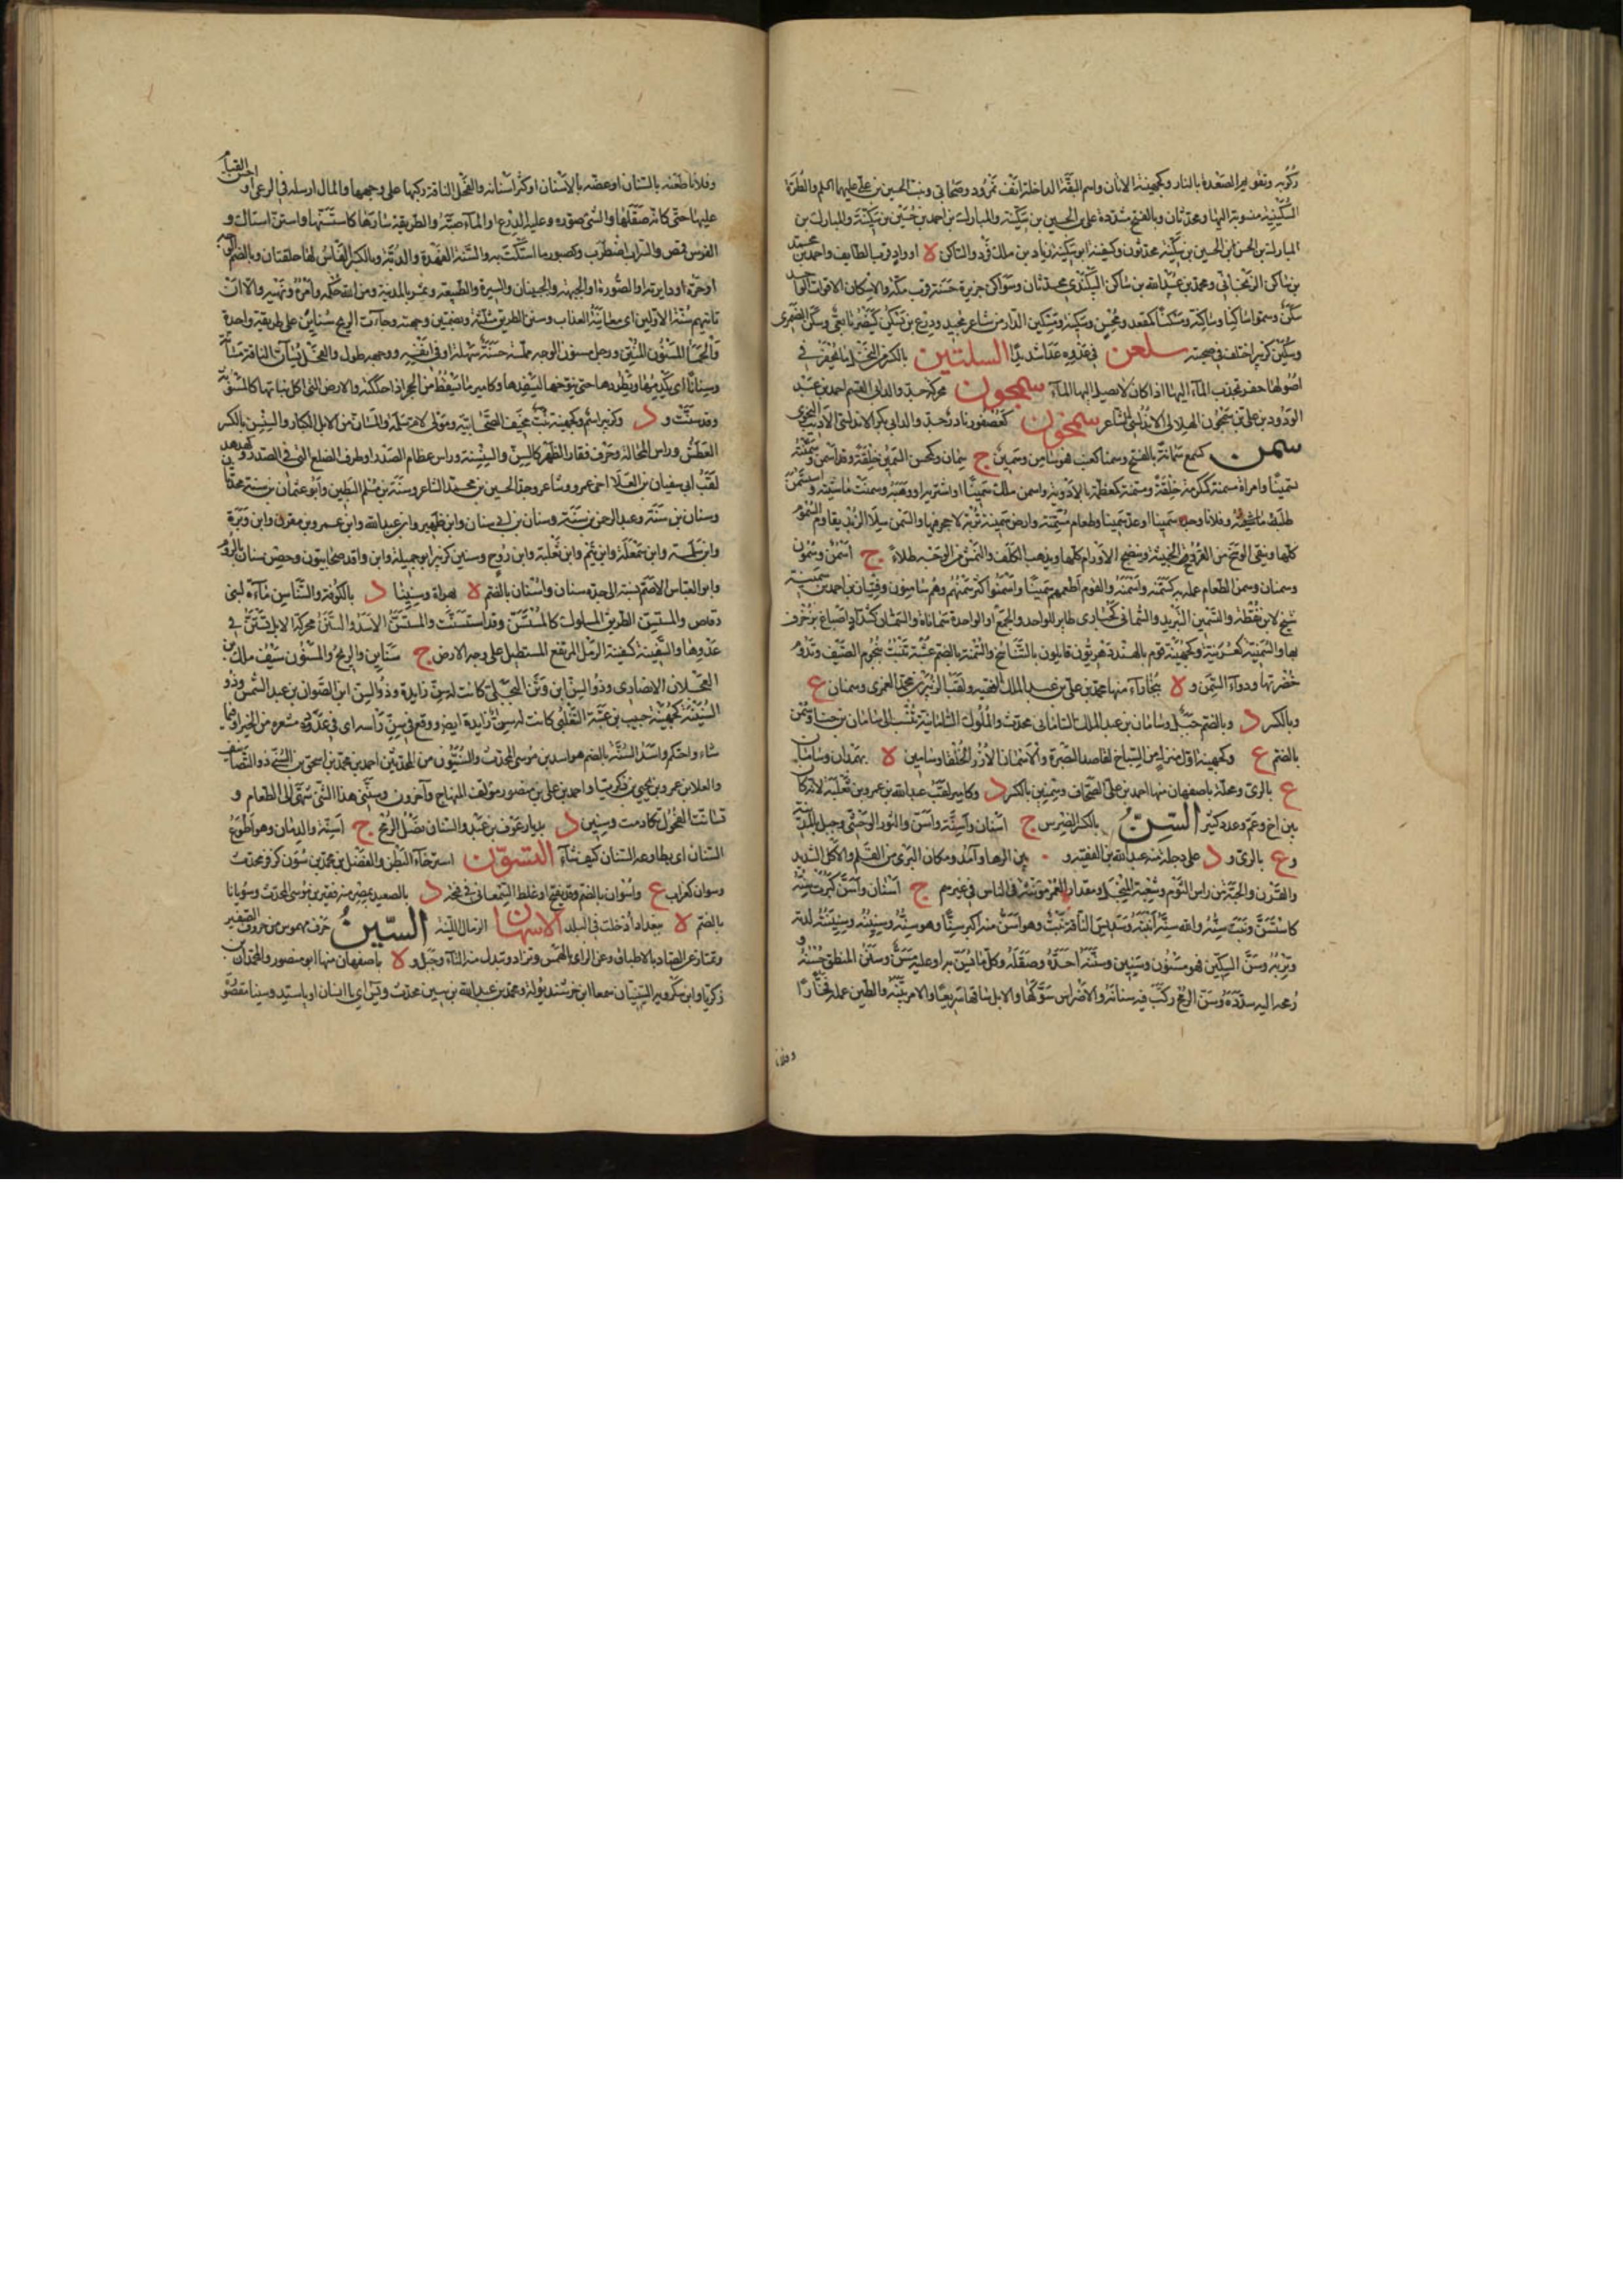 ركوبه وتقويم الصعدة بالنار وكجهينة الاتان واسم البقة الداخلة انف نمرود وصحابى وبنت الحسين بن على عليهما السلم والطرة
السكينية منسوبة اليها ومحدثان وبالفتح مشددة على بن الحسين بن سكينة والمبارك بن احمد بن حسين بن سكينة والمبارك بن
المبارك بن الحسن بن الحسين بن سكينة محدثون وكسفينة ابو سكينة زياد بن ملك فرد والساكن ة او واد قرب الطايف واحمد بن محمد
بن ساكن الزنجانى ومحمد بن عبد الله بن ساكن البيكندى محدثان وسواكن جزيرة حسنة قرب مكة والاسكان الاقوات الواحد
سكن وسموا ساكنا وساكنة ومسكنا كمقعد ومحسن وسكينة ومسكين الدارمى شاعر مجيد ودرع بن يسكن كينصر تابعى وسكن الضمرى
وسكين كزبير اختلف فى صحبته سلعن فى عدوه عدا شديدا السلتين بالكسر من النخل ما يحفر فى
اصولها حفر تجذب الماء اليها اذا كان لا يصل اليها الماء سمجون محركة جد والد ابى القسم احمد بن عبد
الودود بن على بن سمجون الهلالى الاندلسى الشاعر سمحون كعصفور نادر وجد والد ابى بكر الاندلسى الاديب النحوى
سمن كسمع سمانة بالفتح وسمنا كعنب فهو سامن وسمين ج سمان وكمحسن السمين خلقة وقد اسمن وسمنه
تسمينا وامراة مسمنة كمكرمة خلقة ومسمنة كمعظمة بالادوية واسمن ملك سمينا او اشتراه او وهبه وسمنت ماشيته واستسمن
طلب ماشيته وفلانا وجده سمينا او عده سمينا وطعام مسمنة وارض سمينة تربة لا حجر فيها والسمن سلاء الزبد يقاوم السموم
كلها وينقى الوسخ من القروح الخبيثة وينضج الاورام كلها ويذهب الكلف والنمش من الوجه طلاء ج اسمن وسمون
وسمنان وسمن الطعام عمله به كسمنه واسمنه والقوم اطعمهم سمينا واسمنوا كثر سمنهم وهم سامنون وفتيان بن احمد بن سمينية
شيخ لابن نقطة والتسمين التبريد والسمانى كحبارى طاير للواحد والجمع او الواحدة سماناة والسمان كشداد اصباغ يزخرف
بها والسمنية كعرنية وكجهينة قوم بالهند دهريون قايلون بالتناسخ والسمنة بالضم عشبة تنبت بنجوم الصيف وتدوم
خضرتها ودواء السمن و ة ببخاراء منها محمد بن على بن عبد الملك الفقيه ولقب الزبير بن محمد العمرى وسمنان ع
وبالكسر د وبالضم جبل وسامان بن عبد الملك السامانى محدث والملوك السامانية تنسب الى سامان بن حيا وسمن
بالضم ع وكجهينة اول منزل من النباج لقاصد البصرة والاسمان الازر الخلقا وسامين ة بهمدان وسامان
ع بالرى ومحلة باصفهان منها احمد بن على الصحاف وسمنين بالكسر د وكامير لقب عبد الله بن عمرو بن ثعلبة لانه كان
بين اخ وعم وعدد كثير السن بالكسر الضرس ج اسنان واسنة واسن والثور الوحشى وجبل بالمدينة
و ع بالرى و د على دجلة منه عبد الله بن الفقيه و بين الرها وآمد ومكان البرى من القلم والاكل الشديد
والقرن والحبة من راس الثوم وشعبة المنجل ومقدار العمر مونثة فى الناس وغيرهم ج اسنان واسن كبرت سنه
كاستسن ونبت سنه والله سنه انبته وسديس الناقة نبت وهو اسن منه اكبر سنا وهو سنه وسنينه وسنينته لدته
وتربه وسن السكين فهو مسنون وسنين وسننه احده وصقله وكل ما يسن به او عليه مسن وسنن المنطق حسنه و
رمحه اليه سدده وسن الرمح ركب فيه سنانه والاضراس سوكها والابل ساقها سريعا والامر بينه والطين عمله فخارا
وفلانا
وفلانا طعنه بالسنان او عضه بالاسنان او كسر اسنانه والفحل الناقة كبها على وجهها والمال ارسله فى الرعى او احسن القيام
عليها حتى كانه صقلها والشئ صوره وعليه الدرع او الماء صبه والطريقة سارها كاستسنها واستن استاك و
الفرس قمص والسراب اضطرب وكصبور ما استكت به والسنة الفهدة والدبة وبالكسر الفاس لها خلفتان وبالضم الوجه
او حره او دايرته او الصورة او الجبهة والجبينان والسيرة والطبيعة وتمر بالمدينة ومن الله حكمه وامره ونهيه والا ان
تاتيهم سنة الاولين اى معاينة العذاب وسنن الطريق مثلثة وبضمتين وجهته وجاءت الريح سناين على طريقة واحدة
والحمأ المسنون المنتن ورجل مسنون الوجه مملسه حسنه سهله او فى انفه ووجهه طول والفحل يسان الناقة مسانة
وسنانا اى يكدمها ويطردها حتى ينوخها ليسفدها وكامير ما يسقط من الحجر اذا حككته والارض التى اكل نباتها كالمسنونة
وقد سنت و د وكزبير اسم وكجهينة بنت مخنف الصحابية ومولى لام سلمة والمسان من الابل الكبار والسنسن بالكسر
العطش وراس المحالة وحرف فقار الظهر كالسن والسنسنة وراس عظام الصدر او طرف الضلع التى فى الصدر وكهدهد
لقب ابى سفيان بن العلاء اخى عمرو وشاعر وجد الحسين بن محمد الشاعر وسنة بن مسلم البطين وابو عثمان بن سنة محدثان
وسنان بن سنة وعبد الرحمن بن سنة وسنان بن ابى سنان وابن ظهير وابن عبد الله وابن عمرو بن مقرن وابن وبرة
وابن سلمة وابن شمعلة وابن تيم وابن ثعلبة وابن روح وسنين كزبير ابو جميلة وابن واقد صحابيون وحصن سنان بالروم
وابو العباس الاصم نسبة الى جده سنان واسنان بالضم ة بهراة وسنينا د بالكوفة والسناسن ماءة لبنى
وقاص والمستسن الطريق المسلوك كالمستسن وقد استسنت والمستن الاسد والسنن محركة الابل تستن فى
عدوها والسنينة كسفينة الرمل المرتفع المستطيل على وجه الارض ج سناين والريح والمسنون سيف ملك بن
العجلان الانصارى وذو السن ابن وثن البجلى كانت له سن زايدة وذو السن ابن الصوان بن عبد الشمس وذو
السنينة كجهينة حبيب بن عتبة الثعلبى كانت له سن زايدة ايضا ووقع فى سن راسه اى فى عدد شعره من الخير او فيما
شاء واحتكم واسد السنة بالضم هو اسد بن موسى المحدث والسنيون من المحدثين احمد بن محمد بن اسحق بن السنى ذو التصانيف
والعلاء بن عمرو بن يحيى بن زكريا واحمد بن على بن منصور مولف المنهاج وآخرون وسننى هذا الشئ شهى الى الطعام و
تسانت الفحول تكادمت وسنين د بديار عوف بن عبد والسنان نصل الرمح ج اسنة والذبان وهو اطوع
السنان اى يطاوعه السنان كيف شاء التسون استرخاء البطن والفضل بن محمد بن سون كزفر محدث
وسوان كغراب ع واسوان بالضم وقد يفتح او غلط السمعانى فى فتحه د بالصعيد بمصر منه فقير بن موسى المحدث وسويانا
بالضم ة ببغداد ادخلت فى البلد الاسهان الرمال اللينة السين حرف مهموس من حروف الصفير
ويمتاز عن الصاد بالاطباق وعن الزاى بالهمس وتزاد وتبدل منه التاء وجبل و ة باصفهان منها ابو منصور والمحمدان
زكريا وابن سكرويه السينيان سمعا ابن خرشيد يوله ومحمد بن عبد الله بن سين محدث ويس اى يا انسان او يا سيد وسينا مقصو